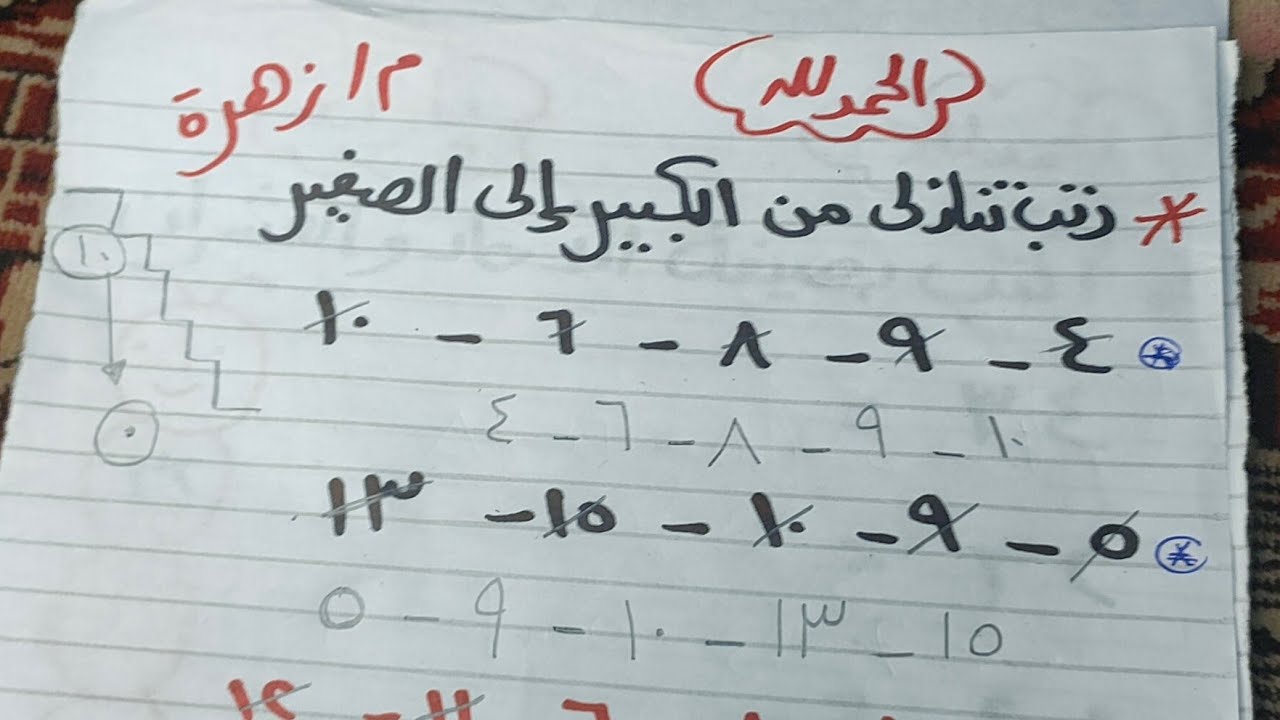 الحمد لله
م / زهرة
* رتب تنازلى من الكبير إلى الصغير
٤ - ٩ - ٨ - ٦ - ١٠
١٠ - ٩ - ٨ - ٦ - ٤
١٠
٠
٥ - ٩ - ١٠ - ١٥ - ١٣
١٥ - ١٣ - ١٠ - ٩ - ٥